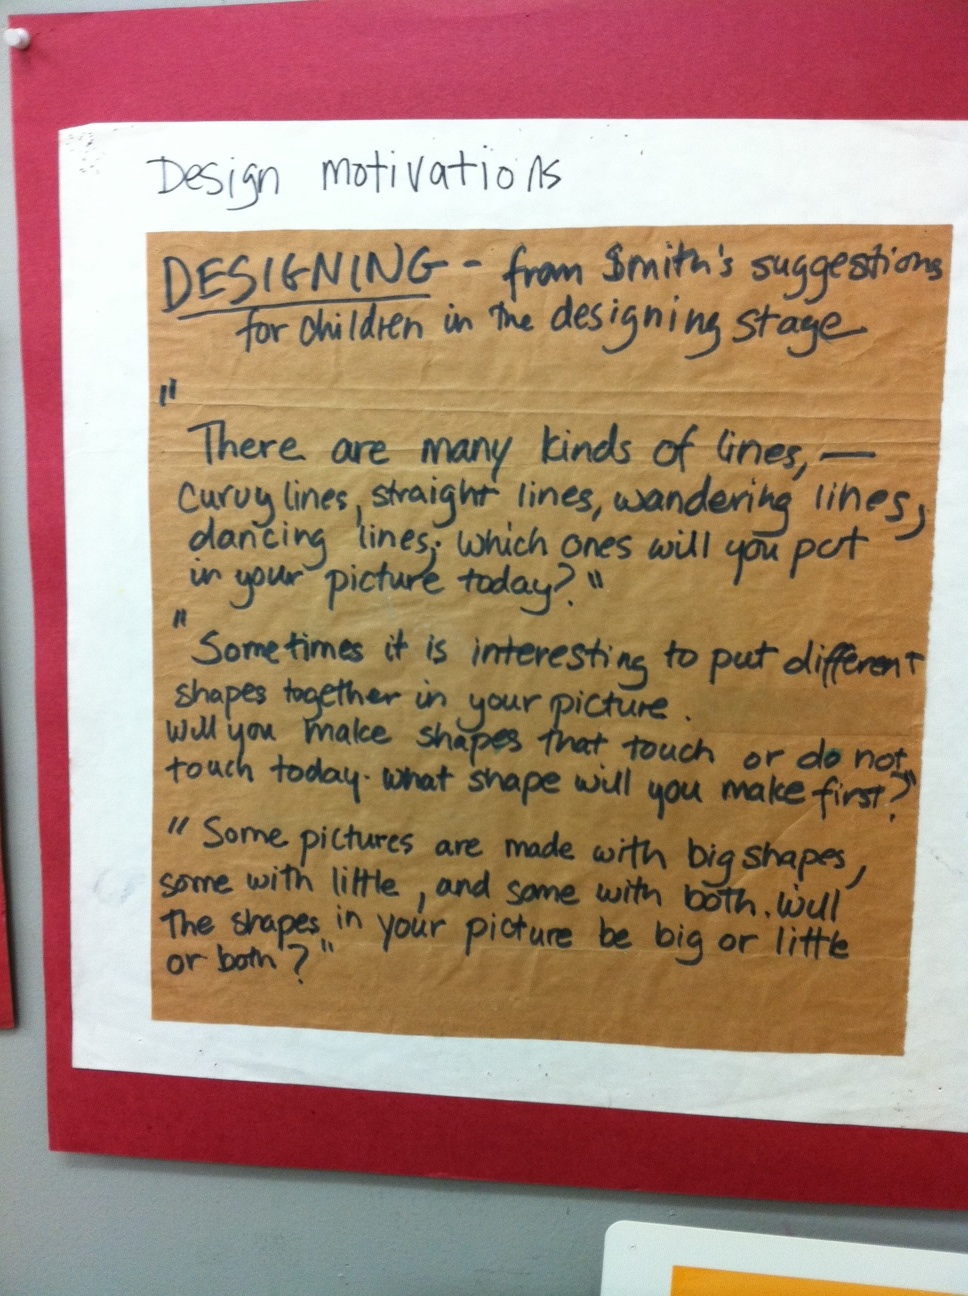 Design motivations
DESIGNING - from Smith's suggestions
for children in the designing stage
"
There are many kinds of lines, —
curvy lines, straight lines, wandering lines,
dancing lines; which ones will you put
in your picture today?"
"
Sometimes it is interesting to put different
shapes together in your picture.
Will you make shapes that touch or do not
touch today. what shape will you make first?"
" Some pictures are made with big shapes,
some with little, and some with both. Will
the shapes in your picture be big or little
or both?"